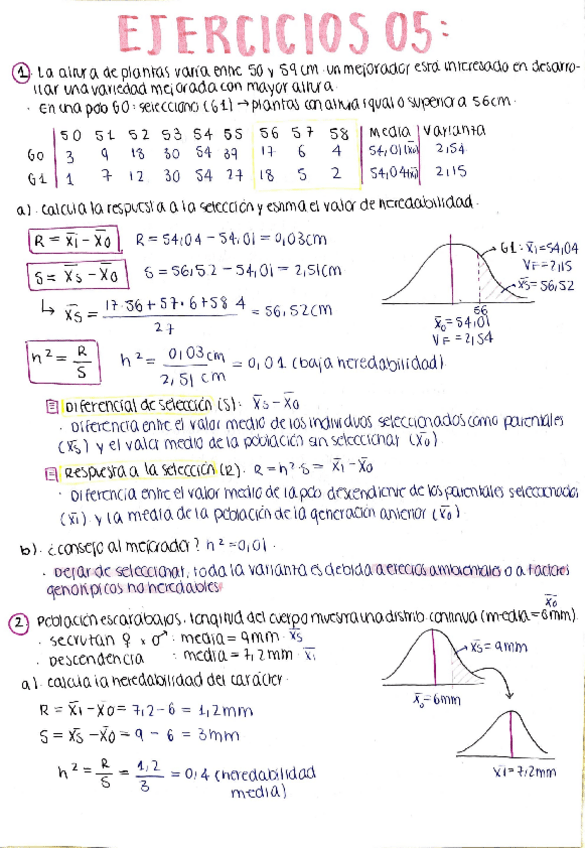 EJERCICIOS 05:
1. La altura de plantas varía entre 50 y 59 cm. un mejorador está interesado en desarro-
llar una variedad mejorada con mayor altura.
· En una pob G0: selecciono (G1) → plantas con altura igual o superior a 56cm.
50 51 52 53 54 55 56 57 58 Media Varianta
G0 3 9 18 30 54 39 17 6 4 54,01(x̄0) 2,54
G1 1 7 12 30 54 27 18 5 2 54,04(x̄1) 2,15
a). calcula la respuesta a la selección y estima el valor de heredabilidad.
R = x̄1 - x̄0 R = 54,04 - 54,01 = 0,03cm
S = x̄s - x̄0 S = 56,52 - 54,01 = 2,51cm
↳ x̄s = 17·56 + 57·6 + 58 4 / 27 = 56,52cm
G1: x̄1 = 54,04
VF = 2,15
x̄s = 56,52
56
x̄0 = 54,01
VF = 2,54
h² = R / S h² = 0,03cm / 2,51 cm = 0,01 (baja heredabilidad)
Diferencial de selección (S): x̄s - x̄0
· Diferencia entre el valor medio de los individuos seleccionados como parentales
(x̄s) y el valor medio de la población sin seleccionar (x̄0).
Respuesta a la selección (R). R = h²·S = x̄1 - x̄0
· Diferencia entre el valor medio de la pob descendiente de los parentales seleccionados
(x̄1) y la media de la población de la generación anterior (x̄0).
b). ¿consejo al mejorador? h² = 0,01.
· Dejar de seleccionar, toda la varianta es debida a efectos ambientales o a factores
genotípicos no heredables
2. Población escarabajos. longitud del cuerpo muestra una distrib. continua (media = 6mm). x̄0
· secrutan ♀ x ♂ : media = 9mm x̄s
· Descendencia : media = 7,2mm x̄1
a). calcula la heredabilidad del carácter.
R = x̄1 - x̄0 = 7,2 - 6 = 1,2mm
S = x̄s - x̄0 = 9 - 6 = 3mm
h² = R / S = 1,2 / 3 = 0,4 (heredabilidad
media)
x̄s = 9mm
x̄0 = 6mm
x̄1 = 7,2mm